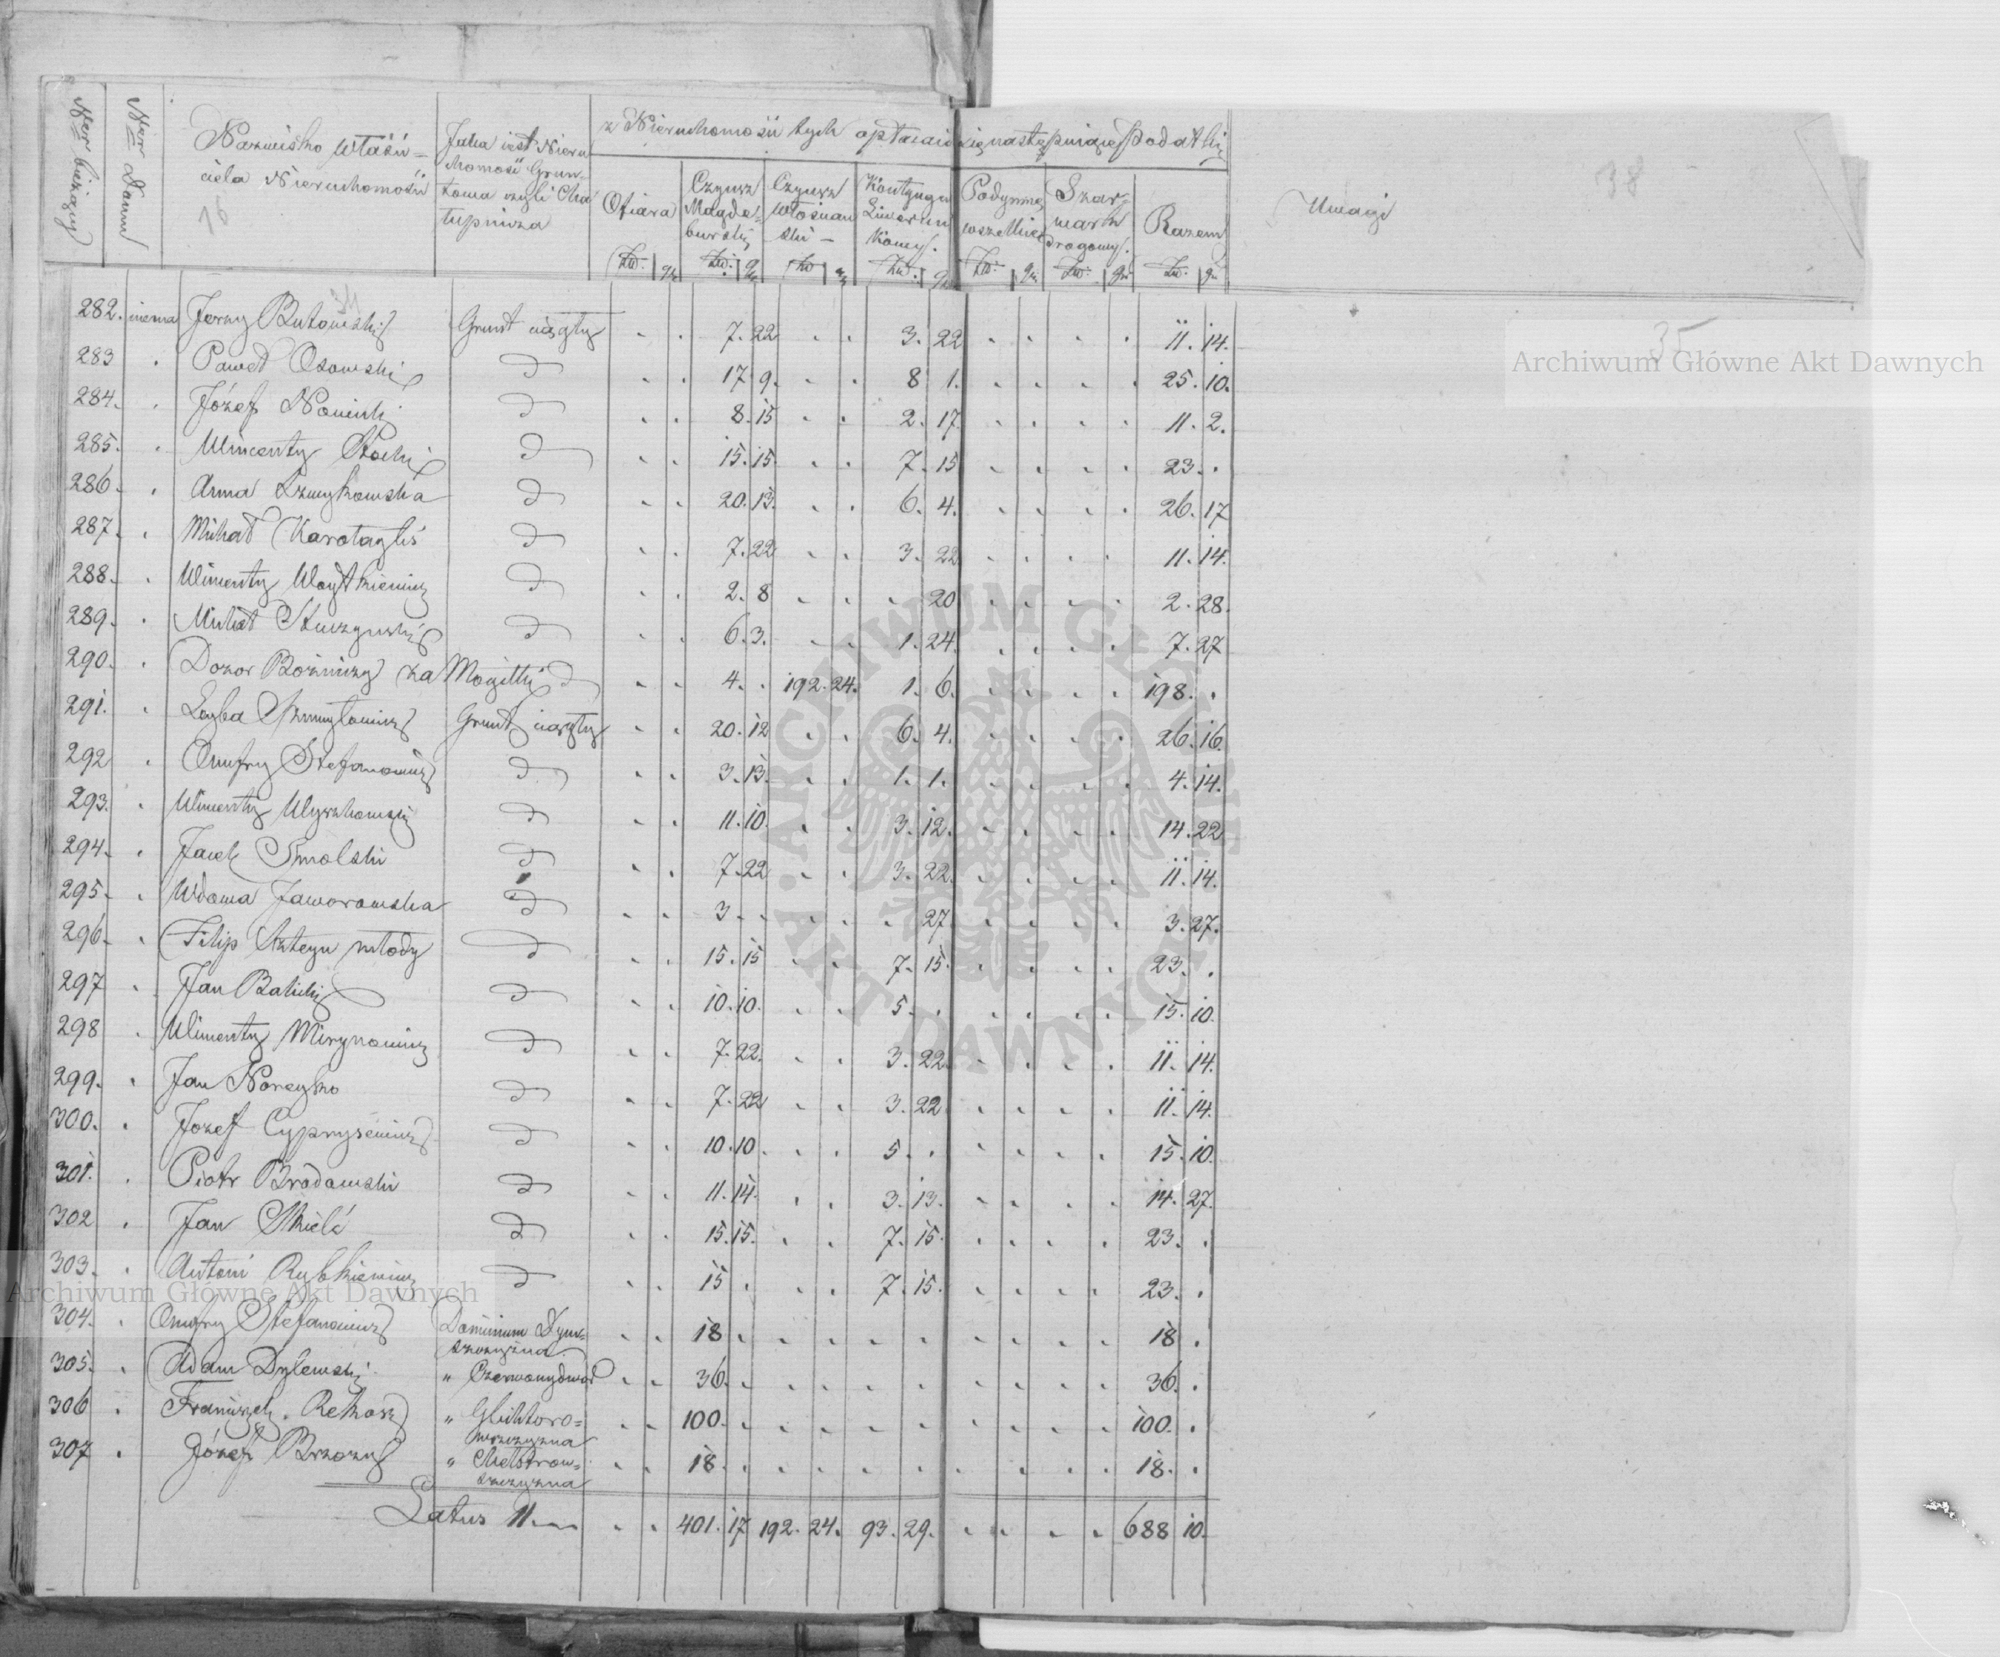 Ner bieżący
Ner Domu
Nazwisko właści=
ciela Nieruchomości
16
Jaka jest Nieru
chomość Grun=
towa czyli Cha
łupnicza
z Nieruchomości tych opłacaią się następuiące Podatki
Ofiara
Czynsz
Magde=
burski
Czynsz
włościań
ski —
Kontyngen
Liwerun
kowy.
Podymne
wszelkie
Szar=
wark
drogowy.
Razem
Uwagi
38
35
Zł: gr Zł: gr Zł gr Zł: gr Zł: gr Zł: gr Zł: gr
282. niema Jerzy Butowski Grunt ciągły 7. 22 3. 22 11. 14.
283 Paweł Osowski d 17 9. 8 1. 25. 10.
284. Józef Nowicki d 8. 15 2. 17. 11. 2.
285. Wincenty d 15. 15. 7. 15 23.
286. Anna d 20. 13. 6. 4. 26. 17
287. Michał d 7. 22 3. 22 11. 14.
288. Wincenty Woytkiewicz d 2. 8 20 2. 28.
289. Michał d 6. 3. 1. 24. 7. 27
290. Dozor Bożniczy za Mogiłki d 4. 192. 24. 1. 6. 198.
291. Leyba Szmuyłowicz Grunt ciągły 20. 12 6. 4. 26. 16.
292 Onufry Stefanowicz d 3. 13. 1. 1. 4. 14.
293. Wincenty Wyszkowski d 11. 10. 3. 12. 14. 22
294. Jacek Smolski d 7. 22 3. 22. 11. 14.
295. Wdowa Jaworowska d 3 27 3. 27.
296. Filip Szteyn młody d 15. 15 7. 15. 23.
297 Jan Balicki d 10. 10. 5. 15. 10.
298 Wincenty Mirynowicz d 7. 22. 3. 22. 11. 14.
299. Jan Noreyko d 7. 22 3. 22 11. 14.
300. Jozef Cyprysewicz d 10. 10. 5. 15. 10.
301. Piotr Bradowski d 11. 14. 3. 13. 14. 27.
302 Jan d 15. 15. 7. 15. 23.
303. Antoni Rybkiewicz d 15 7. 15. 23.
304. Onufry Stefanowicz Dominium
18 18
305. Adam Dylewski " Czerwonydwór 36. 36.
306 Franciszek 100. 100.
307 Józef Brzozow 18. 18.
Latus 11. 401. 17 192. 24. 93. 29. 688 10.
Archiwum Główne Akt Dawnych
Archiwum Główne Akt Dawnych
ARCHIWUM GŁÓWNE AKT DAWNYCH